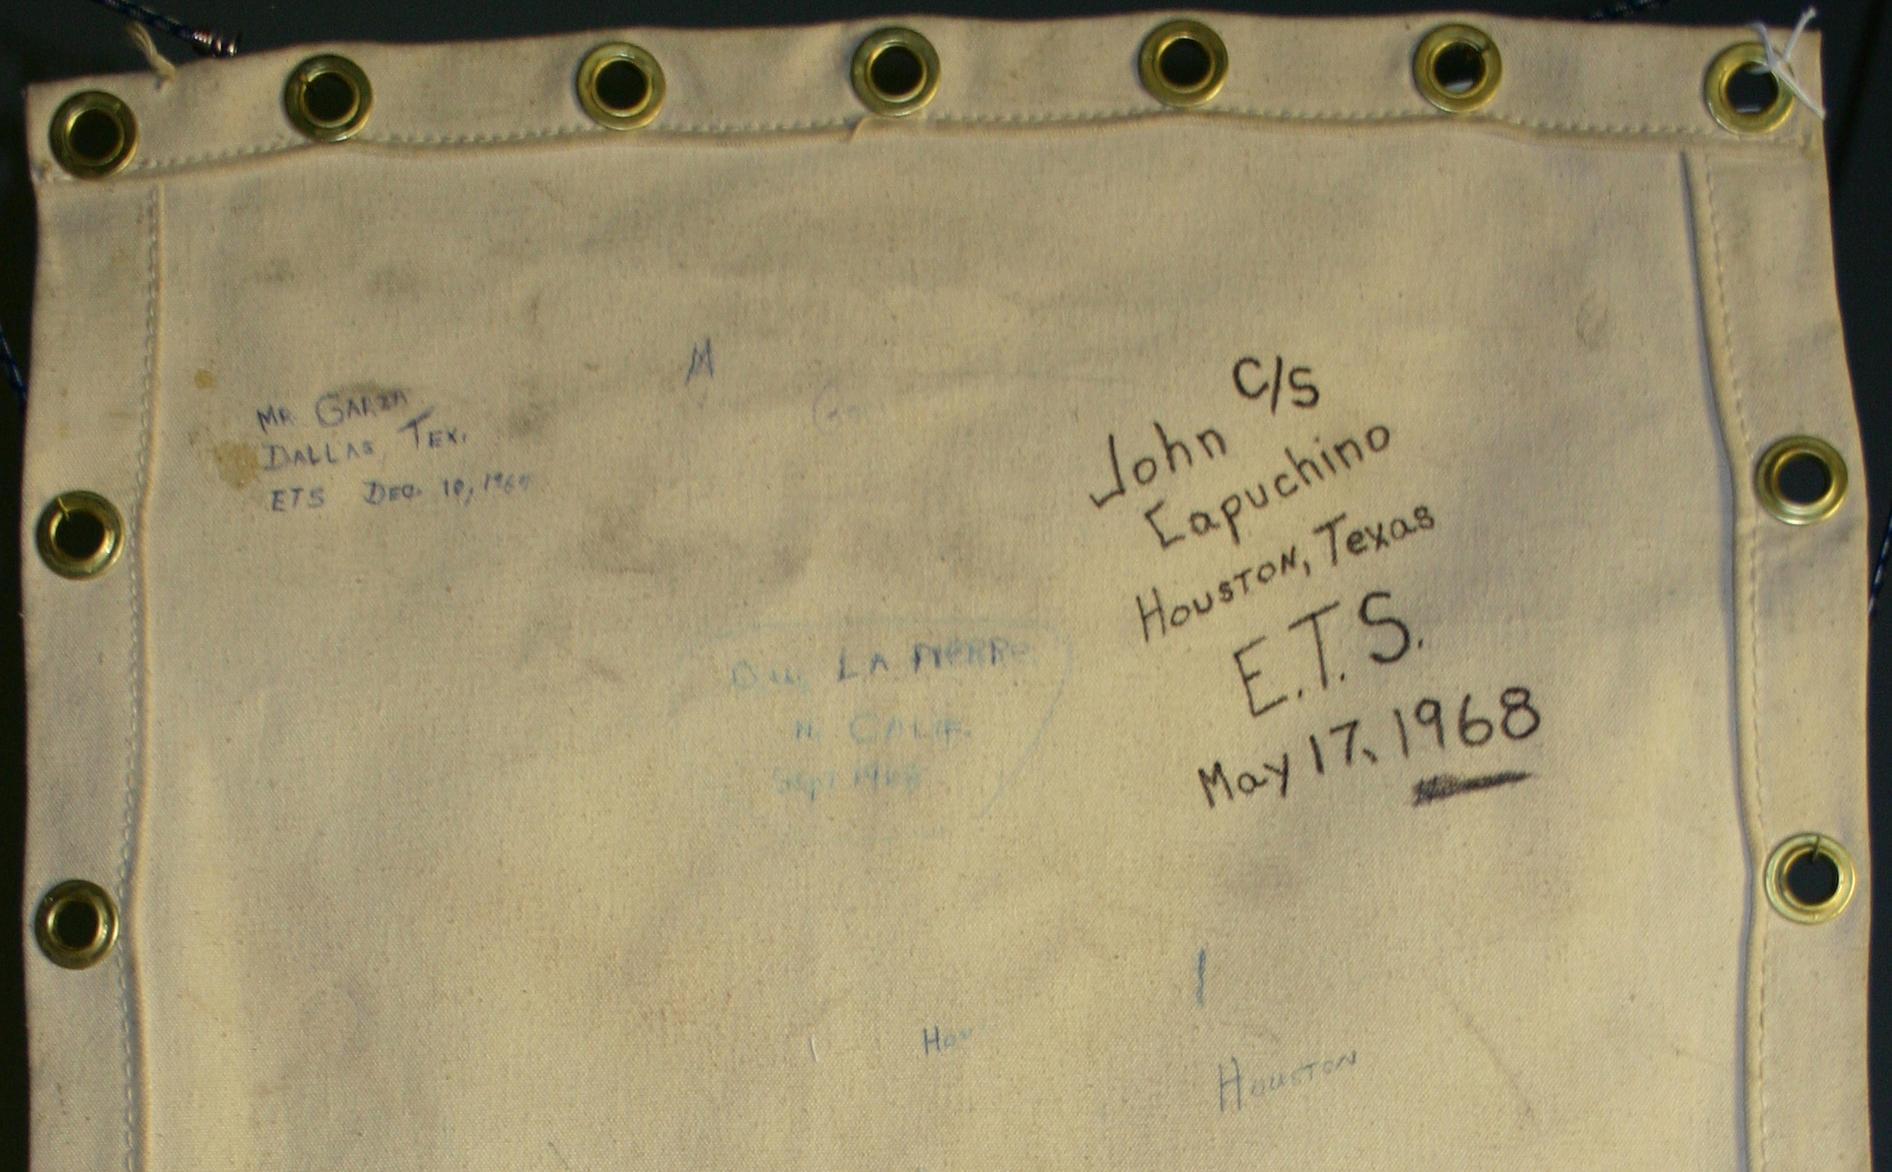 MR GARZA
DALLAS, TEX.
ETS DEC. 10,
C/S
John
Capuchino
Houston, Texas
E.T.S.
May 17, 1968
LA PIERRE
N. CALIF.
Sept 1968
Hou
HOUSTON